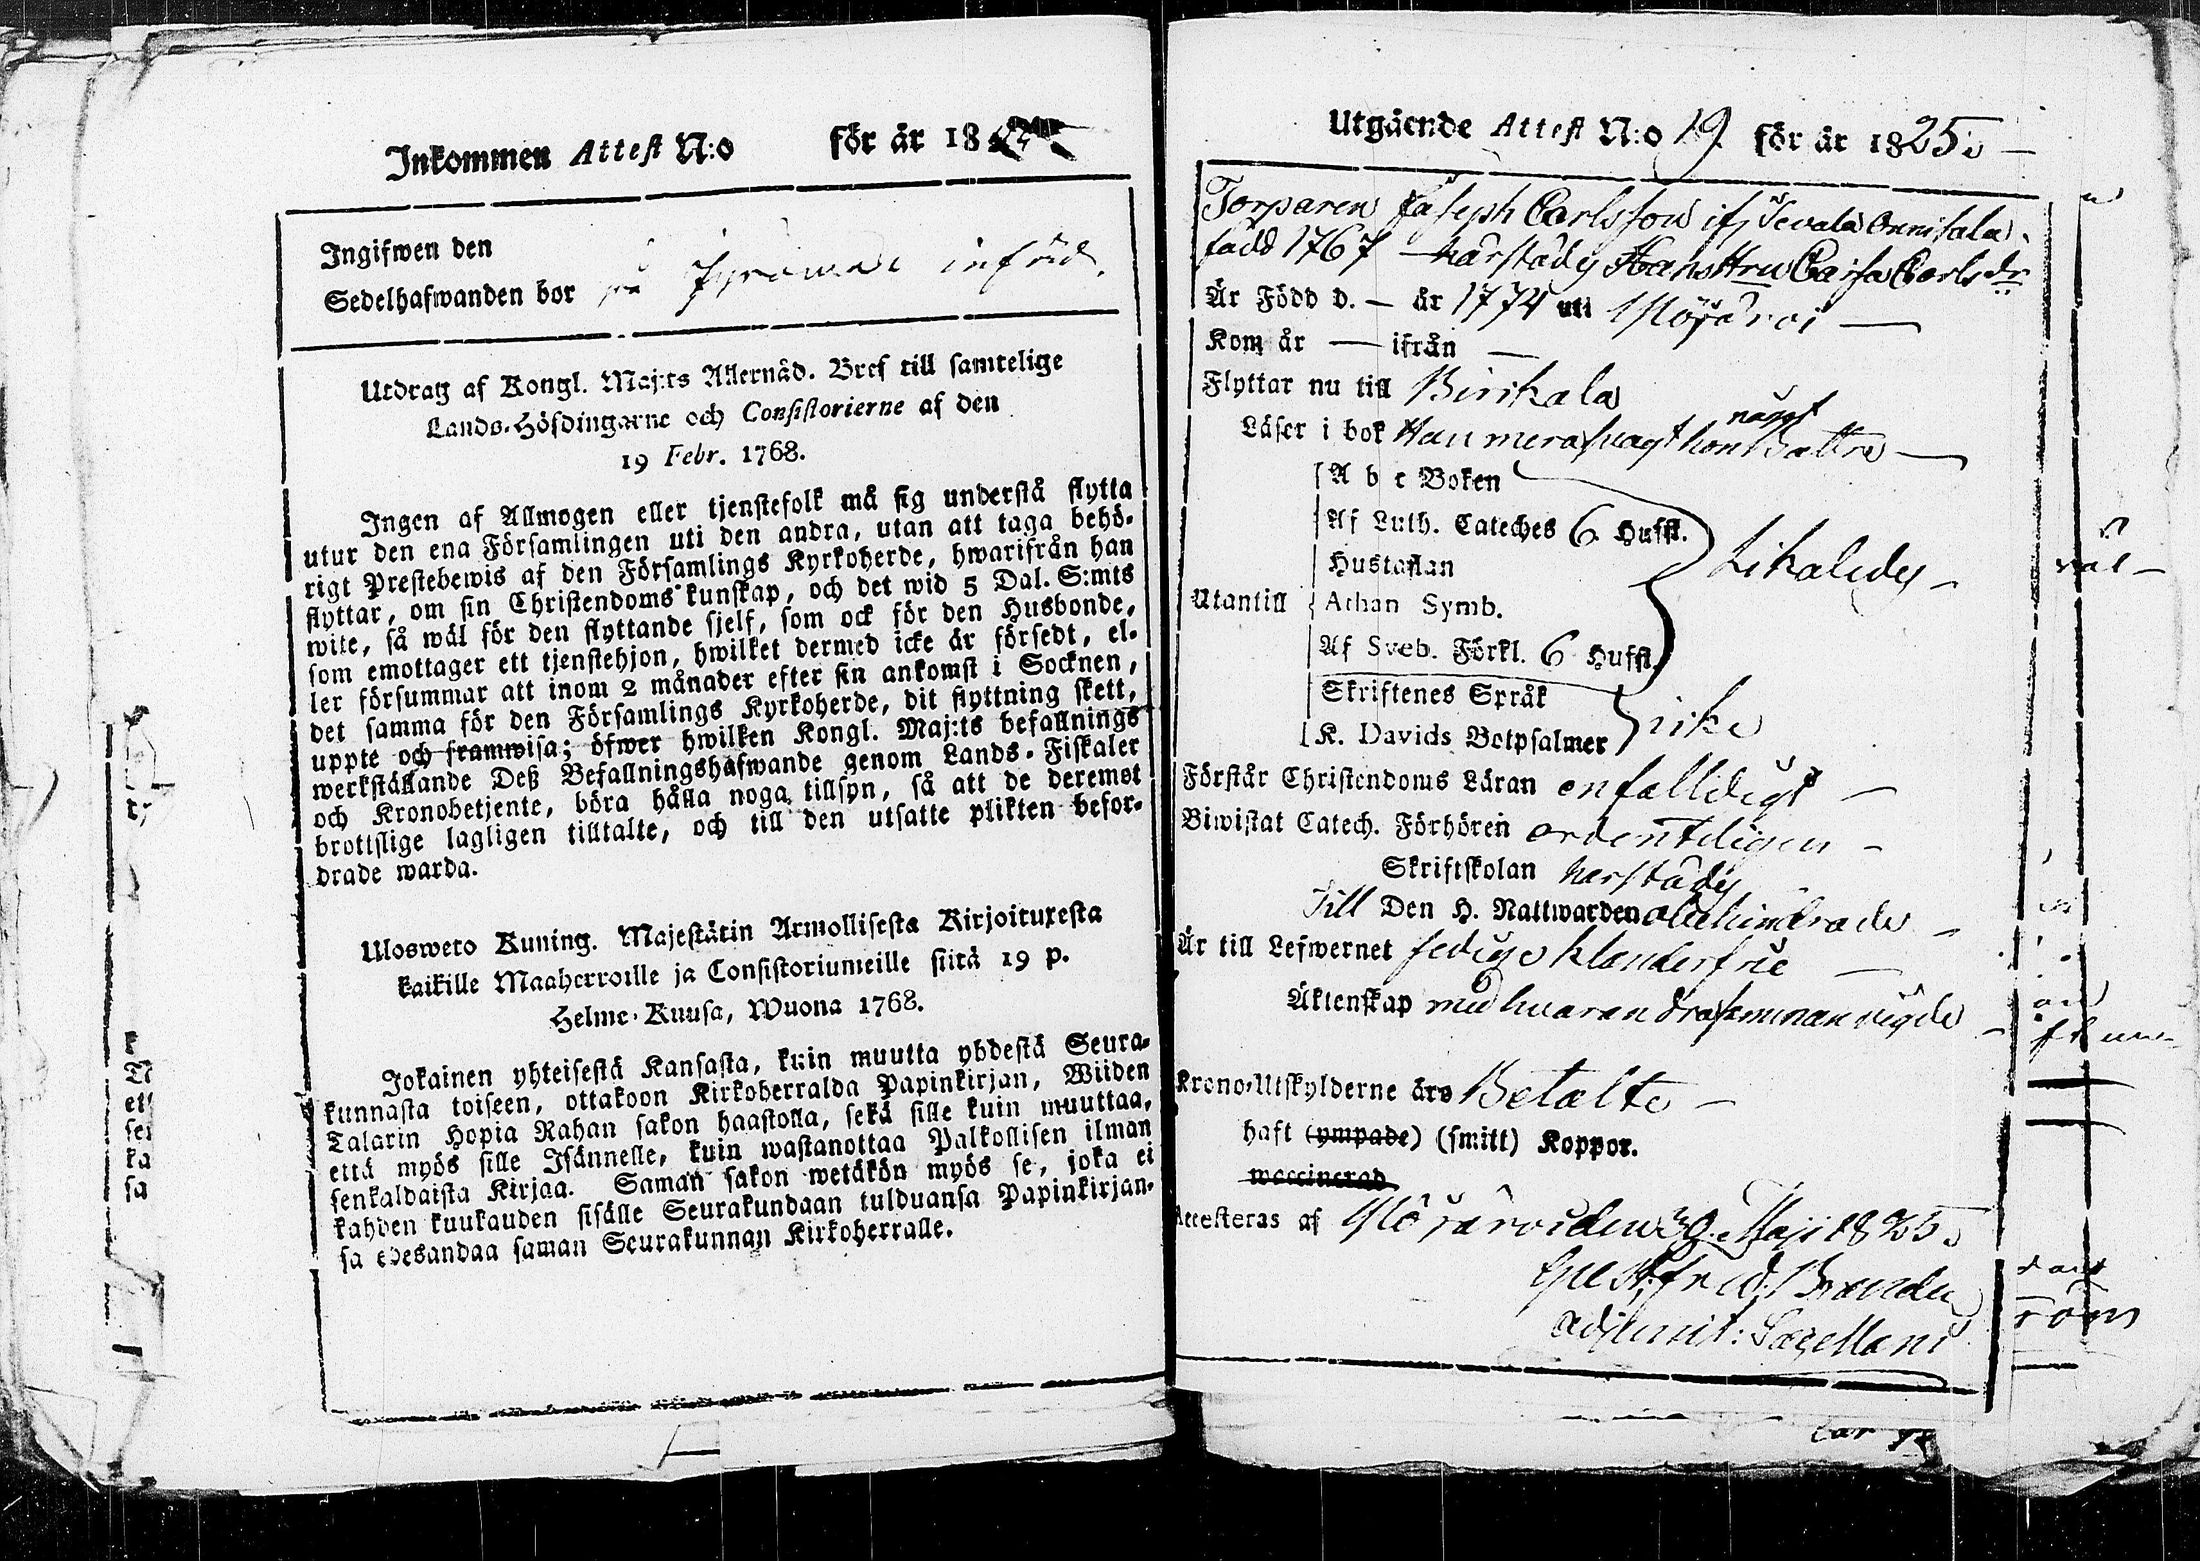 Inkommen Attest N:o för år 18
Ingifwen den
Sedelhafwanden bor på införd.
Utdrag af Kongl. Maj:ts Allernåd. Bref till samtelige
Lands-Höfdingarne och Consistorierne af den
19 Febr. 1768.
Ingen af Allmogen eller tjenstefolk må sig understå flytta
utur den ena Församlingen uti den andra, utan att taga behö-
rigt Prestebewis af den Församlings Kyrkoherde, hwarifrån han
flyttar, om sin Christendoms kunskap, och det wid 5 Dal. S:mts
wite, så wäl för den flyttande sjelf, som ock för den Husbonde,
som emottager ett tjenstehjon, hwilket dermed icke är försedt, el-
ler försummar att inom 2 månader efter sin ankomst i Socknen,
det samma för den Församlings Kyrkoherde, dit flyttning skett,
uppte och framwisa; öfwer hwilken Kongl. Maj:ts befallnings
werkställande Deß Befallningshafwande genom Lands-Fiskaler
och Kronobetjente, böra hålla noga tillsyn, så att de deremot
brottslige lagligen tilltalte, och till den utsatte plikten befor-
drade warda.
Ulosweto Kuning. Majestätin Armollisesta Kirjoituxesta
kaikille Maaherroille ja Consistoriumeille siitä 19 p.
Helme-Kuusa, Wuona 1768.
Jokainen yhteisestä Kansasta, kuin muutta yhdestä Seura-
kunnasta toiseen, ottakoon Kirkoherralda Papinkirjan, Wiiden
Talarin Hopia Rahan sakon haastolla, sekä sille kuin muuttaa,
että myös sille Isännelle, kuin wastanottaa Palkollisen ilman
senkaldaista Kirjaa. Saman sakon wetäkön myös se, joka ei
kahden kuukauden sisälle Seurakundaan tulduansa Papinkirjan-
sa edesandaa saman Seurakunnan Kirkoherralle.
Utgående Attest N:o 19 för år 1825
Torparen Joseph Carlsson ifr Sevala Onnisala
född 1767 härstädes Hans Hru Caisa Carlsdr
Är Född d. — år 1774 uti Mörjärvi —
Kom år — ifrån —
Flyttar nu till Birkala
Läser i bok Han mera svagt hon något Bättre —
A b c Boken
Af Luth. Cateches 6 Huffst.
Hustaflan Likaledes —
Utantill Athan Symb.
Af Sveb. Förkl. 6 Huffst.
Skriftenes Språk
K. Davids Botpsalmer icke
Förstår Christendoms Läran enfalldigt —
Biwistat Catech. Förhören ordenteligen —
Skriftskolan härstädes
Till Den H. Nattwarden obehindrade —
Är till Lefwernet sedige klanderfrie —
Äktenskap med hvarandra sammanvigde —
Krono-Utskylderne äro Betalte —
haft (ympade) (smitt) Koppor.
waccinerad
Attesteras af den 30 Maji 1825
Gust. Fred.
Adjunct: Sacellani